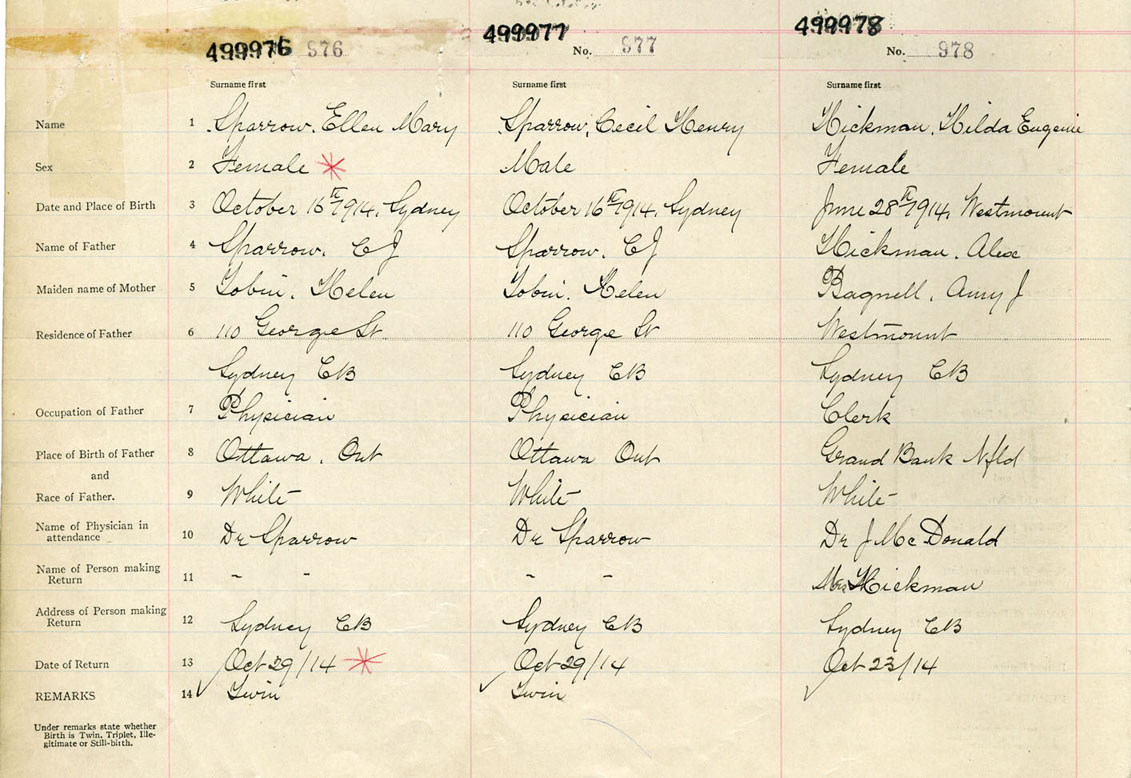 499976 976 499977 No. 977 499978 No. 978
Surname first Surname first Surname first
Name 1 Sparrow, Ellen Mary Sparrow, Cecil Henry Hickman, Hilda Eugenie
Sex 2 Female * Male Female
Date and Place of Birth 3 October 16th 1914, Sydney October 16th 1914, Sydney June 28th 1914, Westmount
Name of Father 4 Sparrow, C J Sparrow, C J Hickman, Alex
Maiden name of Mother 5 Tobin, Helen Tobin, Helen Bagnell, Amy J
Residence of Father 6 110 George St 110 George St Westmount
Sydney CB Sydney CB Sydney CB
Occupation of Father 7 Physician Physician Clerk
Place of Birth of Father 8 Ottawa, Ont Ottawa Ont Grand Bank Nfld
and
Race of Father. 9 White White White
Name of Physician in attendance 10 Dr Sparrow Dr Sparrow Dr J McDonald
Name of Person making Return 11 - - - - Mrs Hickman
Address of Person making Return 12 Sydney CB Sydney CB Sydney CB
Date of Return 13 Oct 29/14 * Oct 29/14 Oct 23/14
REMARKS 14 Twin Twin
Under remarks state whether
Birth is Twin, Triplet, Ille-
gitimate or Still-birth.